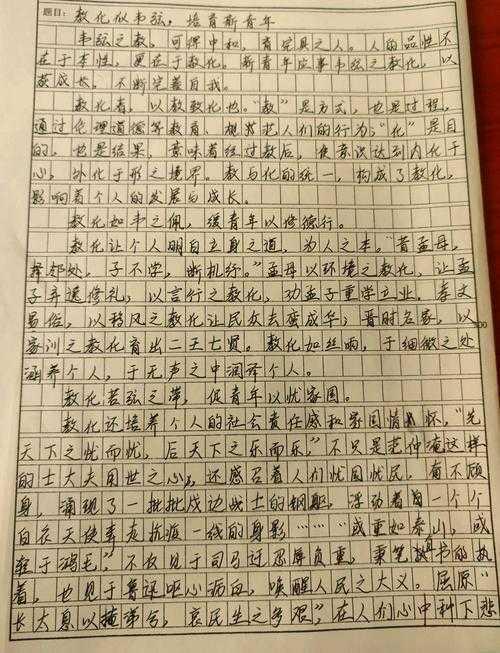 题目：教化似韦弦，培育新青年
韦弦之教，可得中和，育完具之人。人的品性不
在于本性，更在于教化。新青年应事韦弦之教化，以
获成长，不断完善自我。
教化者，以教致化也。“教”是方式，也是过程，
通过伦理道德等教育、规范人们的行为；“化”是目
的，也是结果，意味着经过教后，使意识达到内化于
心，外化于形之境界。教与化的统一，构成了教化，
影响着个人的发展与成长。
教化如韦之佩，缓青年以修德行。
教化让个人明白立身之道，为人之本。“昔孟母，
择邻处，子不学，断机杼。”孟母以环境之教化，让孟
子弃逃修礼；以言行之教化，劝孟子重学立业。孝文
易俗，以移风之教化让民众去蛮成华；晋时名家，以
家训之教化育出二王七贤。教化如丝响，于细微之处
涵养个人，于无声之中润泽个人。
教化若弦之带，促青年以忧家国。
教化还培养个人的社会责任感和家国情怀，“先
天下之忧而忧，后天下之乐而乐，”不只是范仲淹这样
的士大夫用世之心，还感召着人们忧国忧民，奋不顾
身，涌现了一批批戍边战士的钢躯，浮动着一个个
白衣天使奔走抗临一线的身影……“或重如泰山，或
轻于鸿毛”，不仅见于司马迁忍辱负重，秉笔直书的执
着，也见于鲁迅呕心沥血，唤醒人民之大义。屈原“
长太息以掩涕兮，哀民生之多艰”，在人们心中种下悲
300